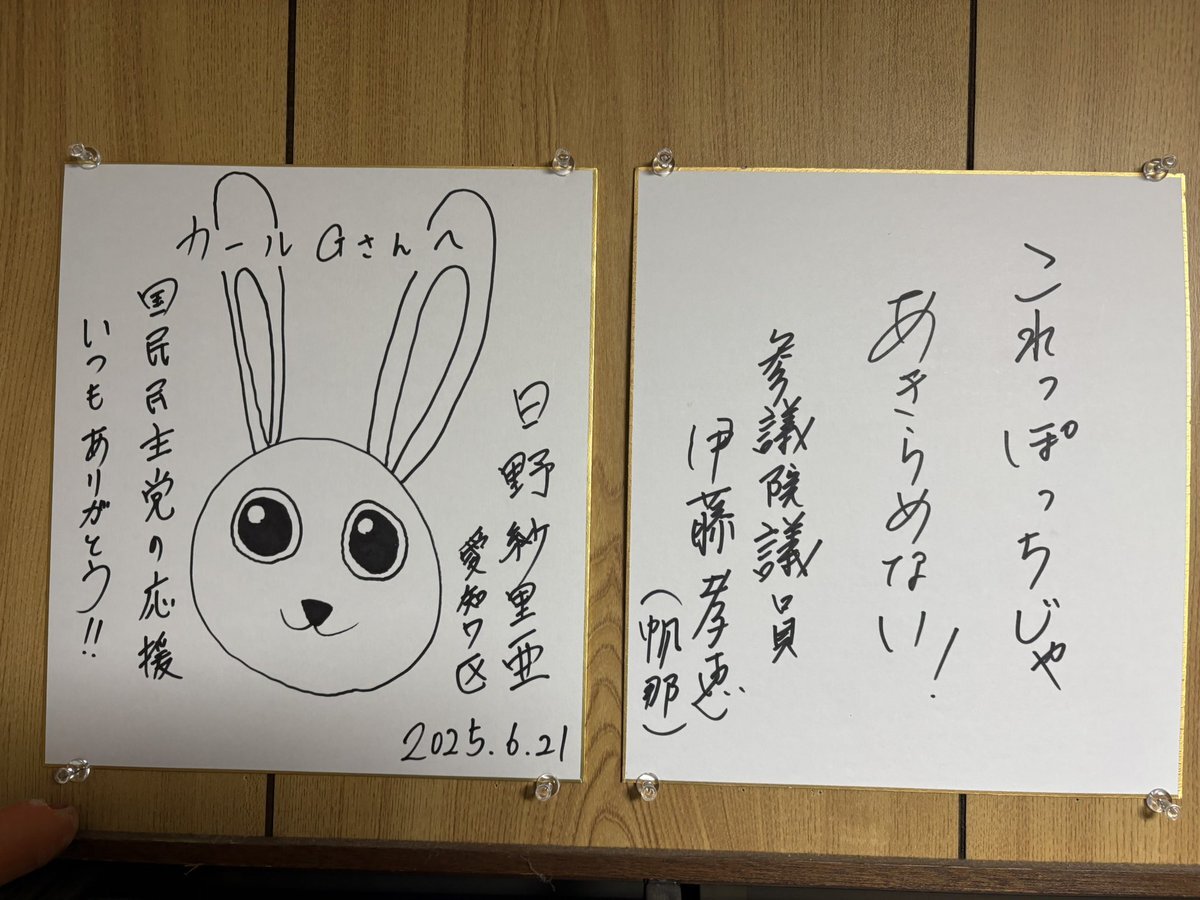 カールGさんへ
日野紗里亜
愛知7区
国民民主党の応援
いつもありがとう!!
2025.6.21
これっぽっちじゃ
あきらめない!
参議院議員
伊藤孝恵
(帆那)